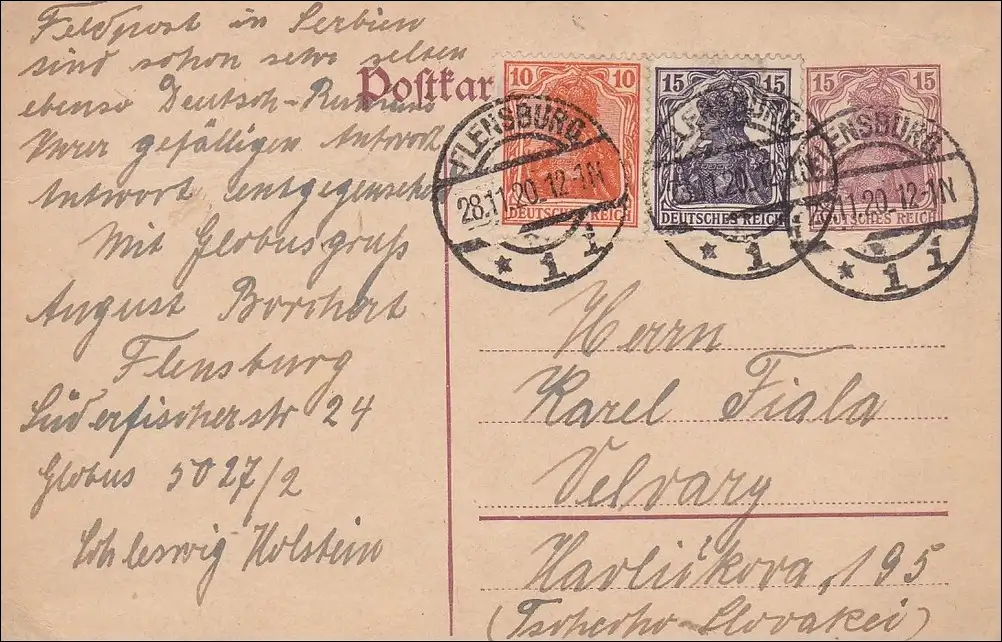 Feldpost in Serbien
sind schon sehr selten
ebenso Deutsch-Rumän
Ihrer gefälligen Antwort
Antwort entgegensehe
Mit Globusgruß
August Borchert
Flensburg
Süderfischerstr 24
Globus 5027/2
Schleswig Holstein
Postkar
10 10
DEUTSCHES REICH
15 15
DEUTSCHES REICH
15 15
DEUTSCHES REICH
FLENSBURG
28.11.20. 12-1N
* 1 i
FLENSBURG
28.11.20. 12-1N
* 1 i
FLENSBURG
28.11.20. 12-1N
* 1 i
Herrn
Karel Fiala
Velvary
Havlíčkova, 195
(Tschecho-Slovakei)